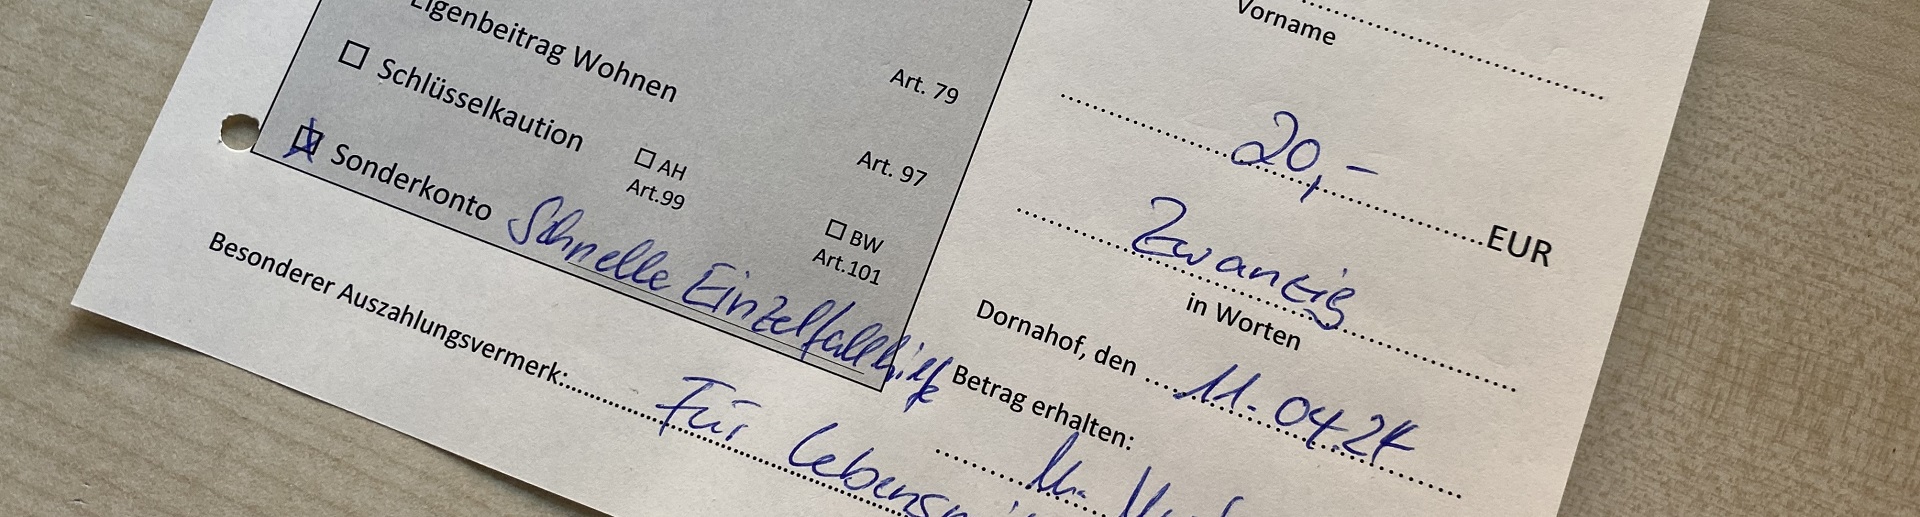 Eigenbeitrag Wohnen Art. 79
☐ Schlüsselkaution Art. 97
☐ AH Art.99
☐ BW Art.101
☒ Sonderkonto Schnelle Einzelfallhilfe
Besonderer Auszahlungsvermerk: Für
Vorname
20,- EUR
Zwanzig
in Worten
Dornahof, den 11.04.24
Betrag erhalten: